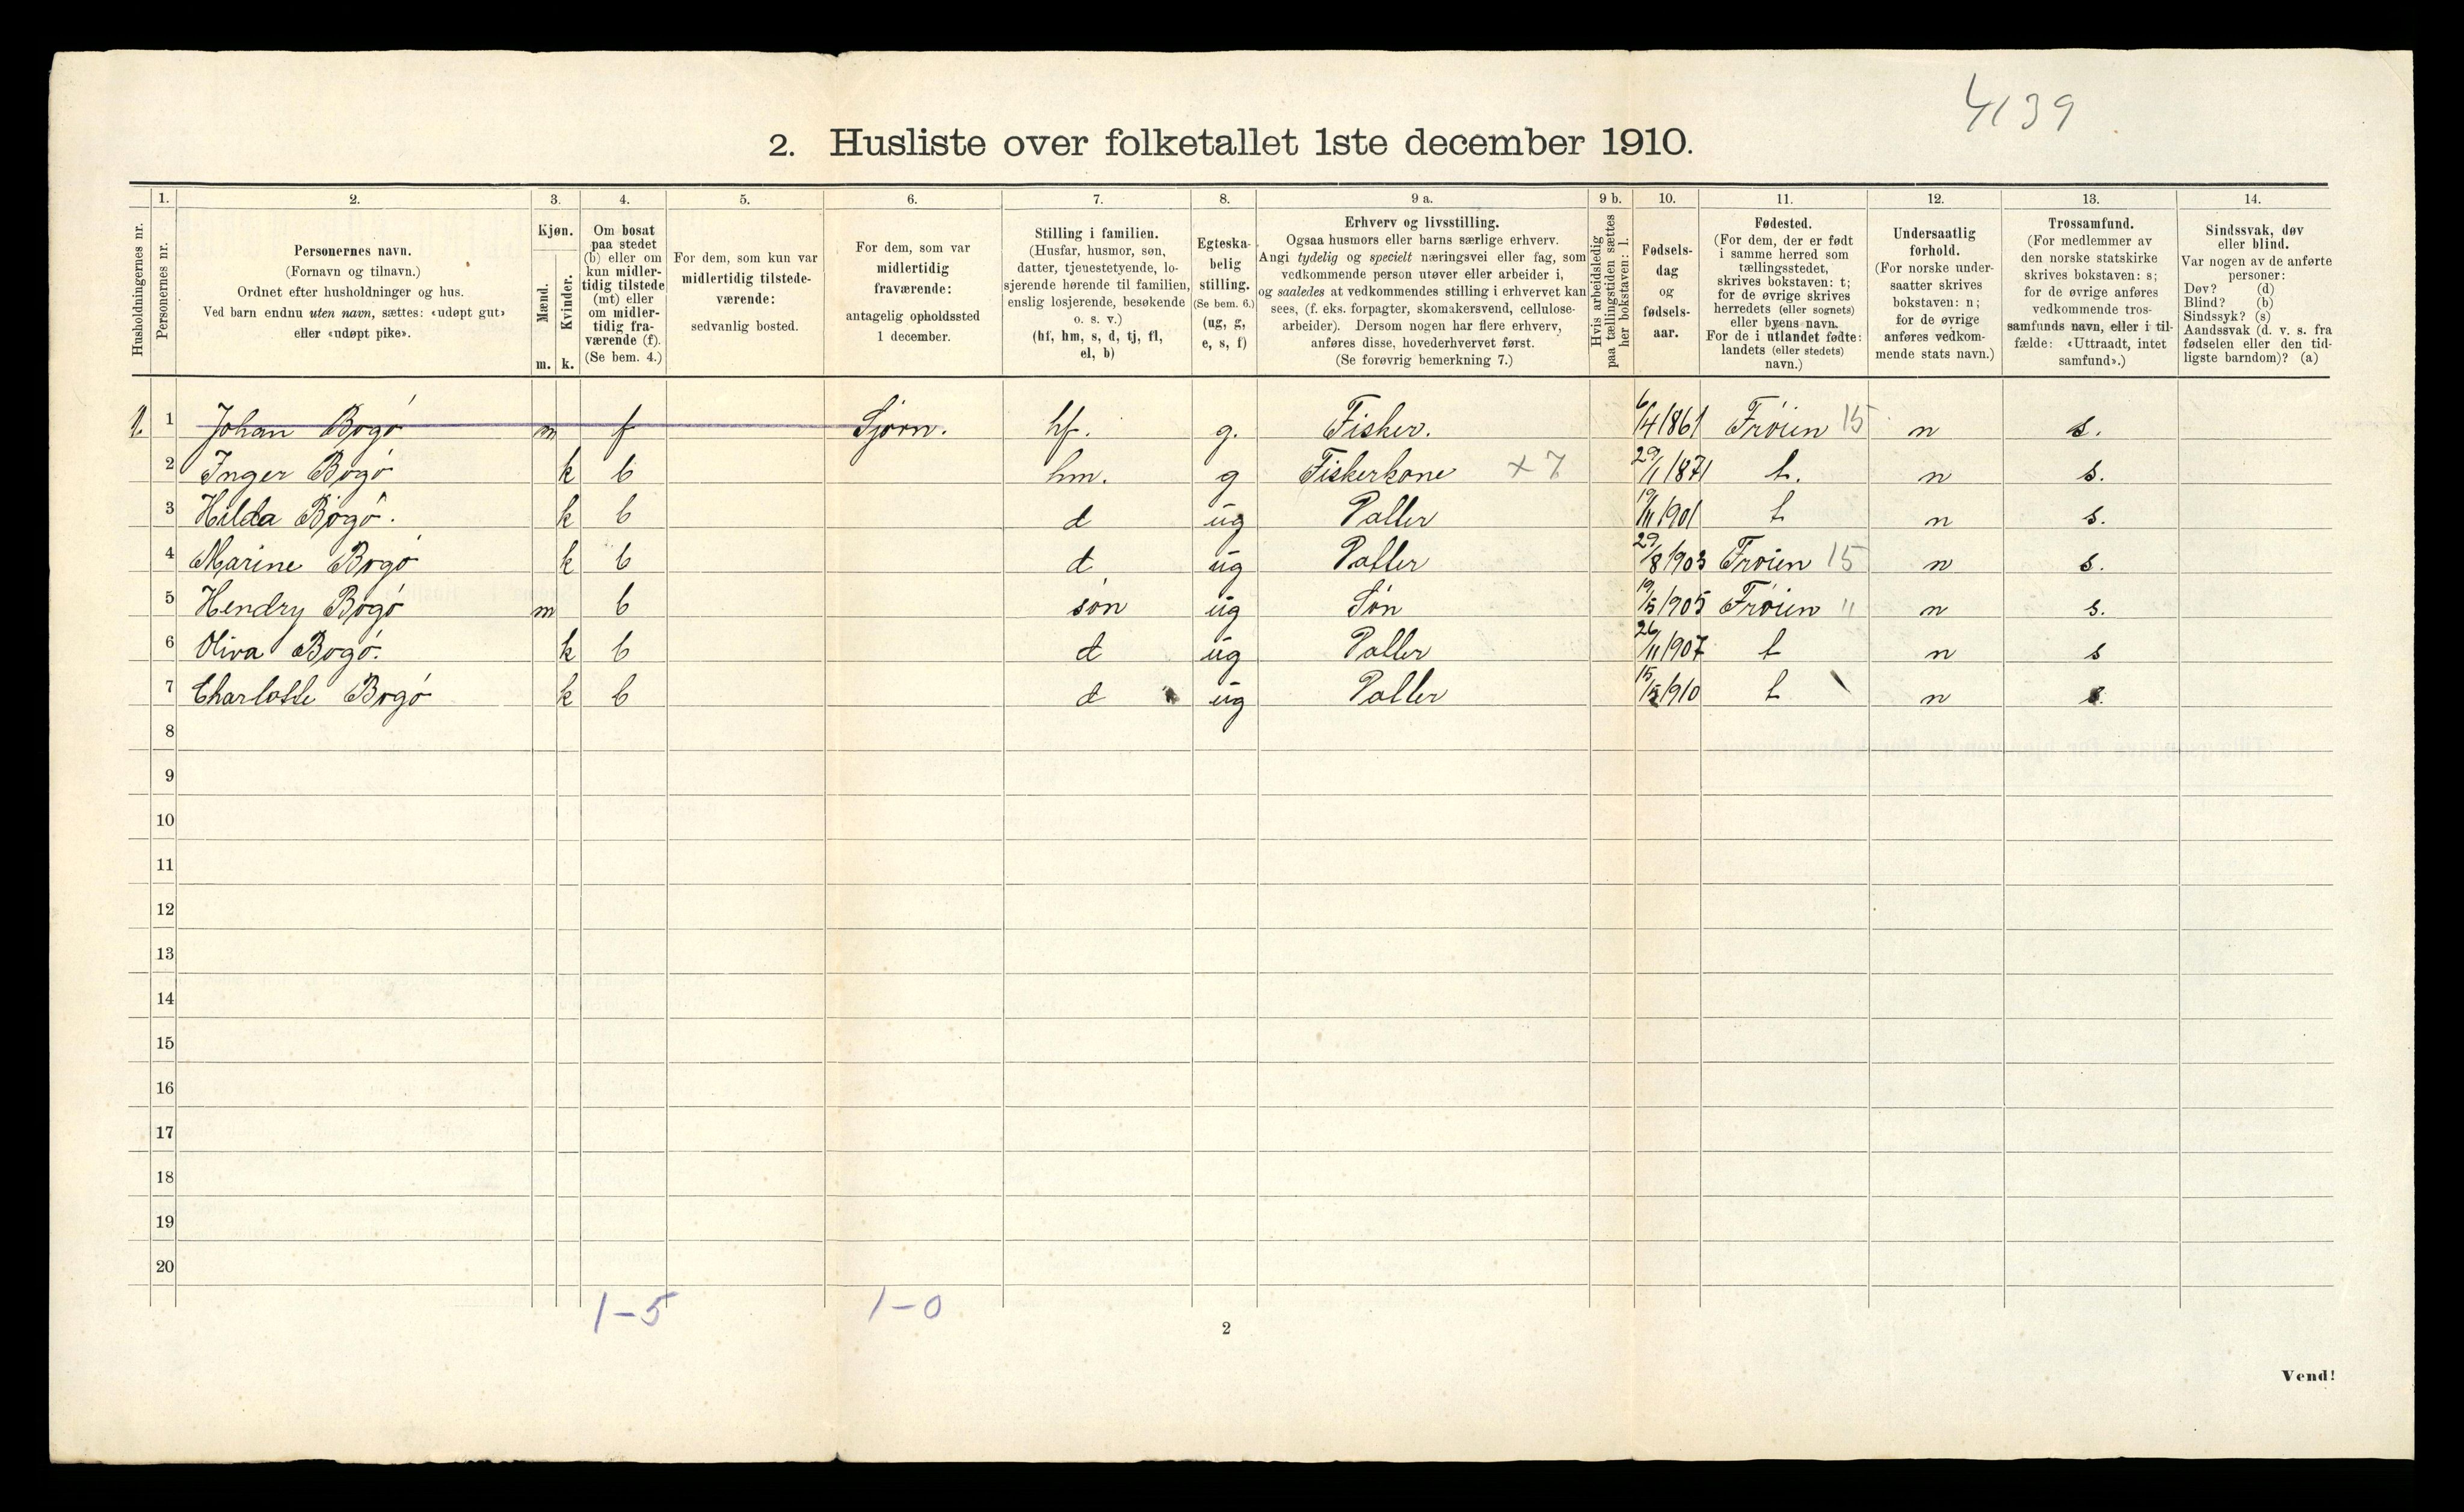 4139
2. Husliste over folketallet 1ste december 1910.
Husholdningernes nr.
1. Personernes nr.
2. Personernes navn.
(Fornavn og tilnavn.)
Ordnet efter husholdninger og hus.
Ved barn endnu uten navn, sættes: «udøpt gut»
eller «udøpt pike».
3. Kjøn.
Mænd. m.
Kvinder. k.
4. Om bosat
paa stedet
(b) eller om
kun midler-
tidig tilstede
(mt) eller
om midler-
tidig fra-
værende (f).
(Se bem. 4.)
5. For dem, som kun var
midlertidig tilstede-
værende:
sedvanlig bosted.
6. For dem, som var
midlertidig
fraværende:
antagelig opholdssted
1 december.
7. Stilling i familien.
(Husfar, husmor, søn,
datter, tjenestetyende, lo-
sjerende hørende til familien,
enslig losjerende, besøkende
o. s. v.)
(hf, hm, s, d, tj, fl,
el, b)
8. Egteska-
belig
stilling.
(Se bem. 6.)
(ug, g,
e, s, f)
9 a. Erhverv og livsstilling.
Ogsaa husmors eller barns særlige erhverv.
Angi tydelig og specielt næringsvei eller fag, som
vedkommende person utøver eller arbeider i,
og saaledes at vedkommendes stilling i erhvervet kan
sees, (f. eks. forpagter, skomakersvend, cellulose-
arbeider). Dersom nogen har flere erhverv,
anføres disse, hovederhvervet først.
(Se forøvrig bemerkning 7.)
9 b. Hvis arbeidsledig
paa tællingstiden sættes
her bokstaven: l.
10. Fødsels-
dag
og
fødsels-
aar.
11. Fødested.
(For dem, der er født
i samme herred som
tællingsstedet,
skrives bokstaven: t;
for de øvrige skrives
herredets (eller sognets)
eller byens navn.
For de i utlandet fødte:
landets (eller stedets)
navn.)
12. Undersaatlig
forhold.
(For norske under-
saatter skrives
bokstaven: n;
for de øvrige
anføres vedkom-
mende stats navn.)
13. Trossamfund.
(For medlemmer av
den norske statskirke
skrives bokstaven: s;
for de øvrige anføres
vedkommende tros-
samfunds navn, eller i til-
fælde: «Uttraadt, intet
samfund».)
14. Sindssvak, døv
eller blind.
Var nogen av de anførte
personer:
Døv? (d)
Blind? (b)
Sindssyk? (s)
Aandssvak (d. v. s. fra
fødselen eller den tid-
ligste barndom)? (a)
1. 1 Johan Bogø m f Sjørn. hf. g. Fisker. 6/4 1861 Frøien 15 n s.
2 Inger Bogø k b hm. g Fiskerkone x 7 29/1 1871 t. n s.
3 Hilda Bogø. k b d ug Datter 19/11 1901 t n s.
4 Marine Bogø k b d ug Datter 29/8 1903 Frøien 15 n s.
5 Hendry Bogø m b søn ug Søn 19/5 1905 Frøien " n s.
6 Oliva Bogø. k b d ug Datter 26/11 1907 t n s
7 Charlotte Bogø k b d ug Datter 15/5 1910 t n s.
8
9
10
11
12
13
14
15
16
17
18
19
20
1-5 1-0
2
Vend!